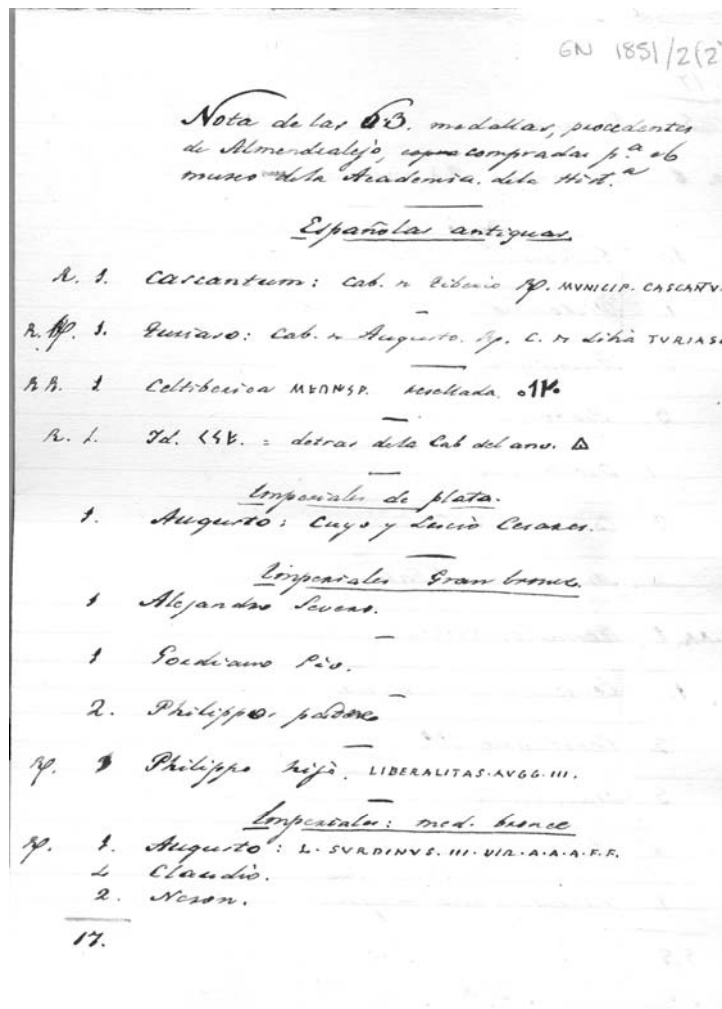 GN 1851/2(2
Nota de las 63. medallas, procedentes
de Almendralejo, compradas p.ª el
museo de la Academia. de la Hist.ª
Españolas antiguas.
R. 1. Cascantum: Cab. de Tiberio Rp. MVNICIP. CASCANTV
R. 1. Turiaso: Cab. de Augusto. Rp. C. de Libia TURIASO
RR. 1 Celtiberica resellada.
R. 1. Id. = detras de la Cab del anv.
Imperiales de plata.
1. Augusto: Cayo y Lucio Cesares.
Imperiales Gran bronce.
1 Alejandro Severo.
1 Gordiano Pio.
2. Philippo padre
Rp. 1 Philippo hijo. LIBERALITAS·AVGG·III.
Imperiales: med. bronce
Rp. 1. Augusto: L· SVRDINVS. III·VIR·A·A·A·F·F.
4 Claudio.
2. Neron.
17.